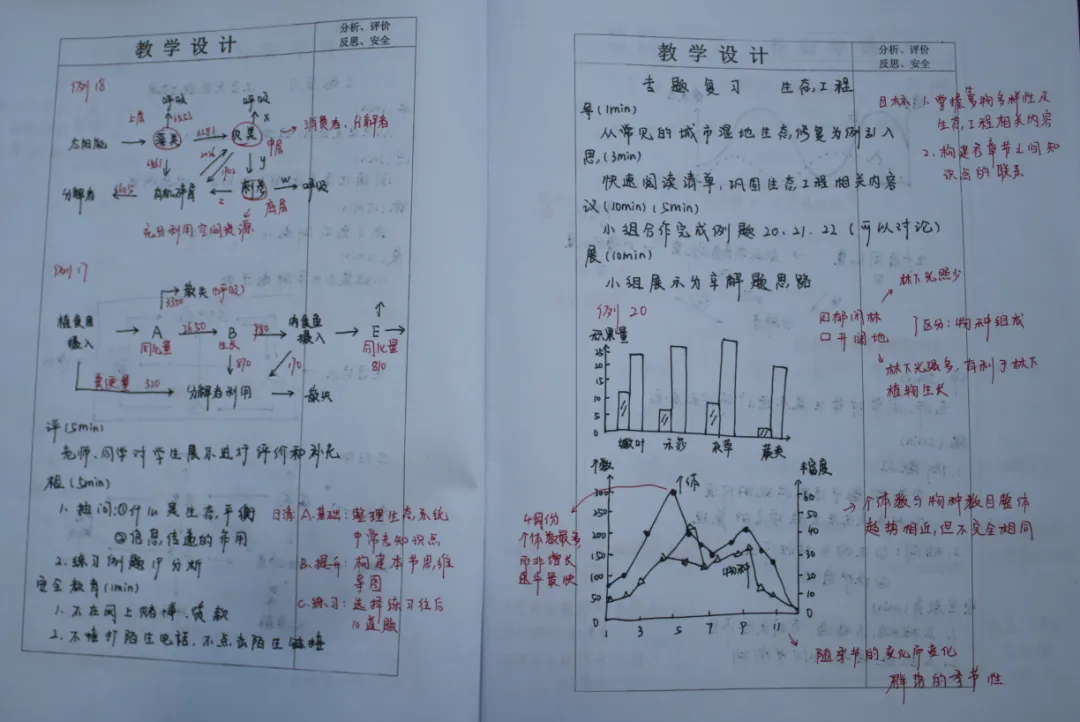 教学设计
分析、评价
反思、安全
例18
呼吸
呼吸
上层
藻类
太阳能
x
消费者、分解者
中层
y
分解者
有机碎屑
w
呼吸
z
底层
充分利用空间资源
例17
散失(呼吸)
植食鱼
摄入
A
同化量
2650
B
生长
肉食鱼
摄入
E
同化量
810
870
粪便量 320
分解者利用
散失
评(5min)
老师、同学对学生展示进行评价和补充
检(5min)
1. 抽问:①什么是生态平衡
②信息传递的作用
2. 练习例题19分析
安全教育(1min)
1. 不在网上赌博、贷款
2. 不接打陌生电话、不点击陌生链接
日清 A.基础:整理生态系统
中常考知识点
B.提升:构建本节思维
导图
C.练习:选择练习往后
10道题
教学设计
分析、评价
反思、安全
专题复习 生态工程
导(1min)
从常见的城市湿地生态修复为例引入
思(3min)
快速阅读清单,巩固生态工程相关内容
议(10min)(5min)
小组合作完成例题20、21、22(可以讨论)
展(10min)
小组展示分享解题思路
目标:1. 掌握生物多样性及
生态工程相关内容
2. 构建各章节之间知
识点的联系
例20
林下光照少
郁闭林
开阔地
区分:物种组成
林下光强多,有利于林下
植物生长
积累量
25
20
15
10
5
0
嫩叶
个数
个体
密度
300
200
150
100
50
0
60
50
40
30
20
10
0
物种
1 3 5 7 9 11
4月份
个体数最多,
而非增长
速率最快
个体数与物种数目整体
趋势相近,但不完全相同
随季节的变化而变化
群落的季节性